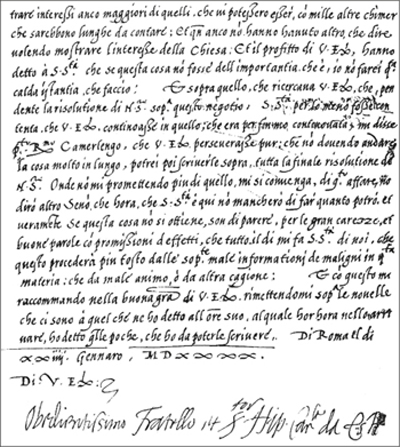 trare interessi anco maggiori di quelli. che vi potessero esser, cò mille altre chimer
che sarebbono lunghe da contare; Et qñ anco nò hanno havuto altro, che dire
volendo mostrare l'interesse della Chiesa: Et il profitto di V. Ex, hanno
detto à S. Stà che se questa cosa nò fosse dell'importantia che è, io nò farei
calda istantia, che faccio: Et sopra quello, che ricercava V. Ex, che, pen
dente la risolutione di N. S. sop. questo negotio, S. Stà per lo meno fosse con
tenta, che V. Ex. continoasse in quello, che era per fermo, mi disse
Camerlengo, che V. Ex. perseverasse pur; che nò dovendo andare
la cosa molto in lungo, potrei poi scriverle sopra, tutta la finale risolutione
N. S. Onde nò mi promettendo piu di quello, mi si convenga, di affare, nò
dirò altro senò, che hora, che S. Stà è qui nò mancherò di far quanto potrò. et
veramète se questa cosa nò si ottiene, son di parere, per le gran carezze, et
buone parole cò promissioni d'effetti, che tutto il dì mi fa S. Stà di noi, che
questo procederà piu tosto dalle sop.te male informationj de maligni in
materia: che da mal'animo, ò da altra cagione: Et cò questo mi
raccommando nella buona gra di V. Ex. rimettendomi sop. le novelle
che ci sono à quel che ne ho detto all'ore suo, al quale hor hora nello
vare, ho detto q̃lle poche, che ho da poterle scrivere. Di Roma el dì
xxiiij. Gennaro, M D xxxxx.
Di. V. Ex:
Obedientissimo Fratello Hip. Car. da